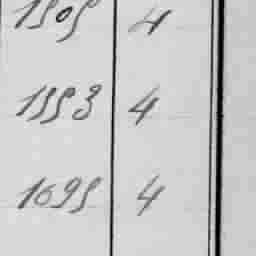 1505 4
1553 4
1695 4